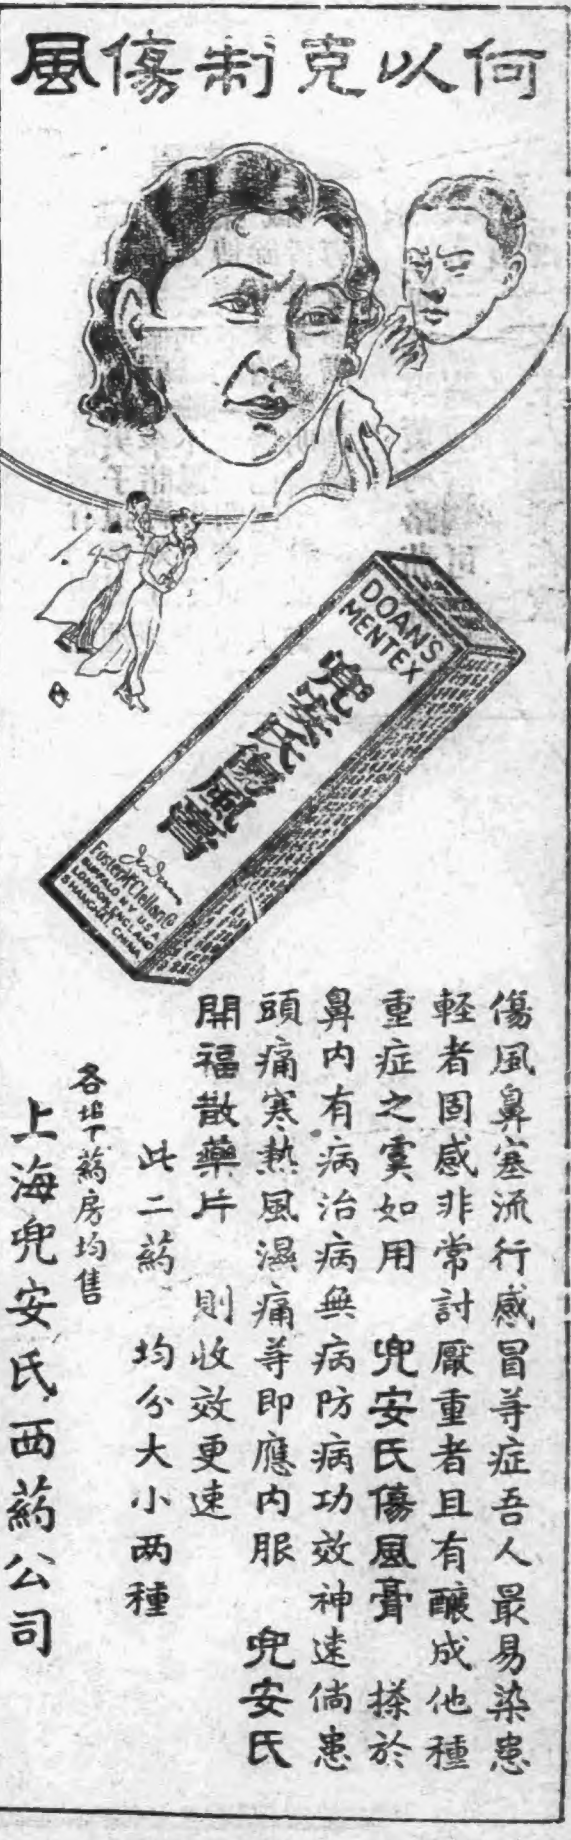 何以克制傷風
DOAN'S
MENTEX
兜安氏傷風膏
Foster McClellan Co
BUFFALO N.Y. U.S.A.
LONDON, ENGLAND
SHANGHAI CHINA
傷風鼻塞流行感冒等症吾人最易染患
輕者固感非常討厭重者且有釀成他種
重症之虞如用 兜安氏傷風膏 搽於
鼻內有病治病無病防病功效神速倘患
頭痛寒熱風濕痛等即應內服 兜安氏
開福散藥片 則收效更速
此二葯 均分大小两種
各埠葯房均售
上海兜安氏西葯公司